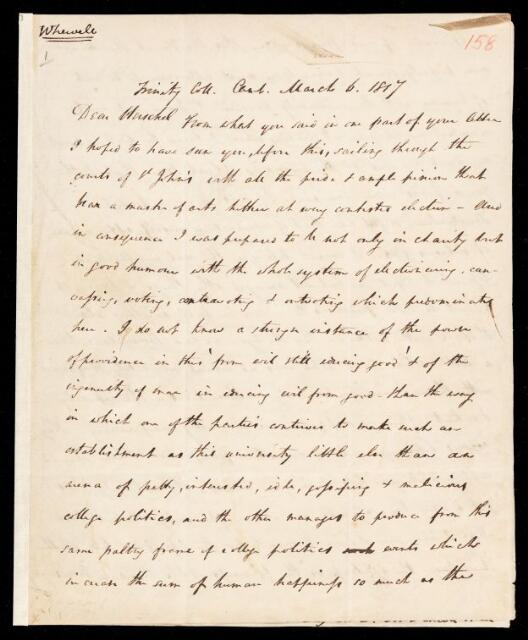 Whewell
1
158
Trinity Coll. Camb. March 6. 1817
Dear Herschel From what you said in one part of your letter
I hoped to have seen you, before this, sailing through the
courts of St John's with all the pride & ample pinion that
bear a master of arts hither at every contested election – And
in consequence I was prepared to be not only in charity but
in good humour with the whole system of electioneering, can-
vassing, voting, & outvoting which predominates
here. I do not know a stronger instance of the power
of providence in this 'from evil still educing good' & of the
ingenuity of man in educing evil from good – than the way
in which one of the parties contrives to make such an
establishment as this university little else than an
arena of petty, interested, idle, gossiping & malicious
college politics, and the other manages to produce from this
same paltry frame of college politics events which
increase the sum of human happiness so much as the